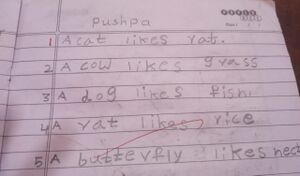 pushpa
1 A cat likes rat.
2 A cow likes grass
3 A dog likes fish
4 A rat likes rice
5 A butterfly likes nect